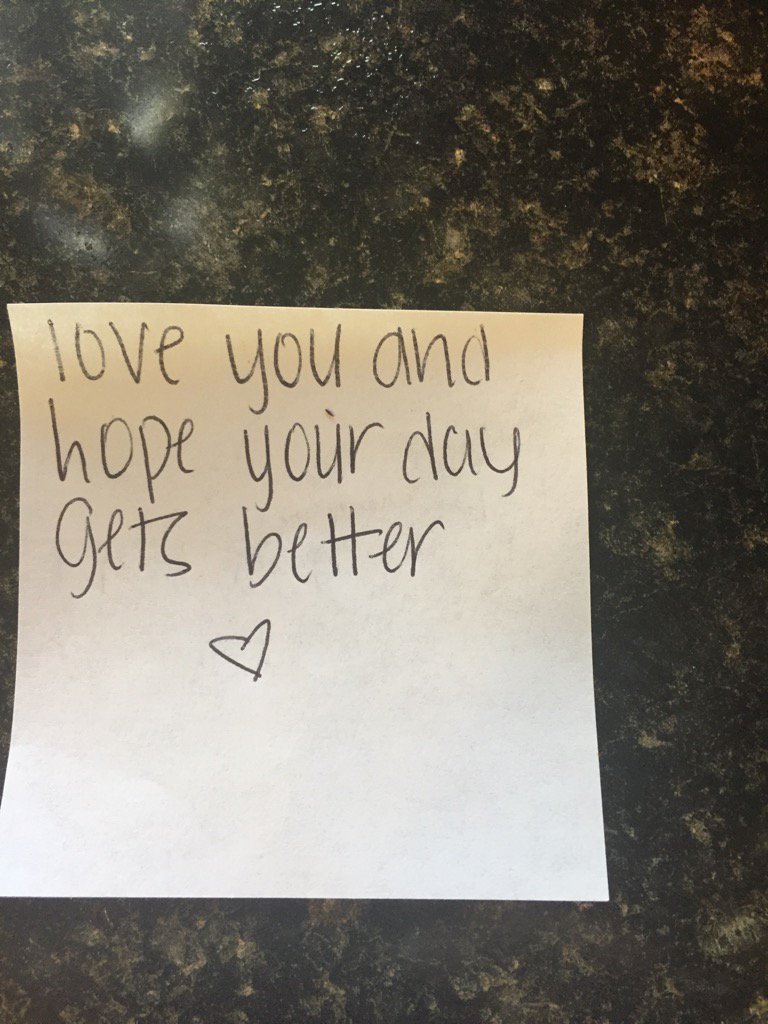 love you and
hope your day
gets better